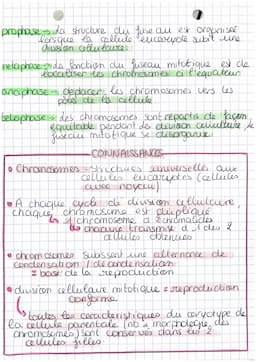 prophase → La structure du fuseau est organisée
lorsque la cellule eucaryote subit une
division cellulaire.
métaphase → La fonction du fuseau mitotique est de
localiser les chromosomes à l'équateur.
anaphase → déplacer les chromosomes vers les
pôles de la cellule
télophase → les chromosomes sont répartis de façon
équitable pendant la division cellulaire, le
fuseau mitotique se désorganise.
CONNAISSANCES
• Chromosomes = structures universelles aux
cellules eucaryotes (cellules
avec noyau)
• A chaque cycle de division cellulaire,
chaque chromosome est dupliqué
↳ 1 chromosome à 2 chromatides
↳ chacune transmise à 1 des 2
cellules obtenues
• chromosomes subissent une alternance de
condensation / décondensation
= base de la reproduction
• division cellulaire mitotique = reproduction
conforme
↳ toutes les caractéristiques du caryotype de
la cellule parentale (nb + morphologie des
chromosomes) sont conservées dans les 2
cellules filles.